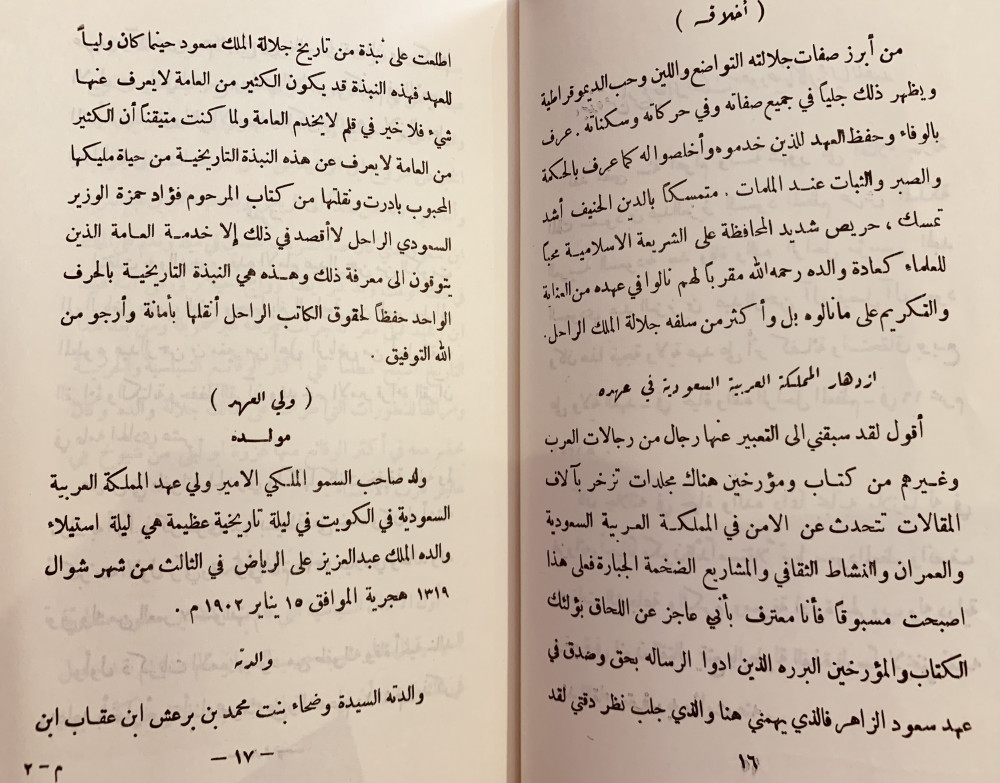 ( أخلاقه )
من أبرز صفات جلالته التواضع واللين وحب الديموقراطية
ويظهر ذلك جلياً في جميع صفاته وفي حركاته وسكناته . عرف
بالوفاء وحفظ العهد للذين خدموه وأخلصوا له كما عرف بالحكمة
والصبر والثبات عند الملمات . متمسكاً بالدين الحنيف أشد
تمسك ، حريص شديد المحافظة على الشريعة الاسلامية محباً
للعلماء كعادة والده رحمه الله مقرباً لهم نالوا في عهده من العناية
والتكريم على مانالوه بل وأكثر من سلفه جلالة الملك الراحل .
ازدهار المملكة العربية السعودية في عهده
أقول لقد سبقني الى التعبير عنها رجال من رجالات العرب
وغيرهم من كتاب ومؤرخين هناك مجلدات تزخر بآلاف
المقالات تتحدث عن الامن في المملكة العربية السعودية
والعمران والنشاط الثقافي والمشاريع الضخمة الجبارة فعلى هذا
اصبحت مسبوقاً فأنا معترف بأني عاجز عن اللحاق بؤلئك
الكتاب والمؤرخين البرره الذين ادوا الرساله بحق وصدق في
عهد سعود الزاهر فالذي يهمني هنا والذي جلب نظر دقتي لقد
١٦
اطلعت على نبذة من تاريخ جلالة الملك سعود حينما كان ولياً
للعهد فهذه النبذة قد يكون الكثير من العامة لايعرف عنها
شيء فلا خير في قلم لايخدم العامة ولما كنت متيقناً أن الكثير
من العامة لايعرف عن هذه النبذة التاريخية من حياة مليكها
المحبوب بادرت ونقلتها من كتاب المرحوم فؤاد حمزة الوزير
السعودي الراحل لا أقصد في ذلك إلا خدمة العامة الذين
يتوقون الى معرفة ذلك وهذه هي النبذة التاريخية بالحرف
الواحد حفظاً لحقوق الكاتب الراحل أنقلها بأمانة وأرجو من
الله التوفيق .
( ولي العهد )
مولده
ولد صاحب السمو الملكي الامير ولي عهد المملكة العربية
السعودية في الكويت في ليلة تاريخية عظيمة هي ليلة استيلاء
والده الملك عبدالعزيز على الرياض في الثالث من شهر شوال
١٣١٩ هجرية الموافق ١٥ يناير ١٩٠٢ م .
والدته
والدته السيدة وضحاء بنت محمد بن برعش ابن عقاب ابن
– ١٧ –
م – ٢